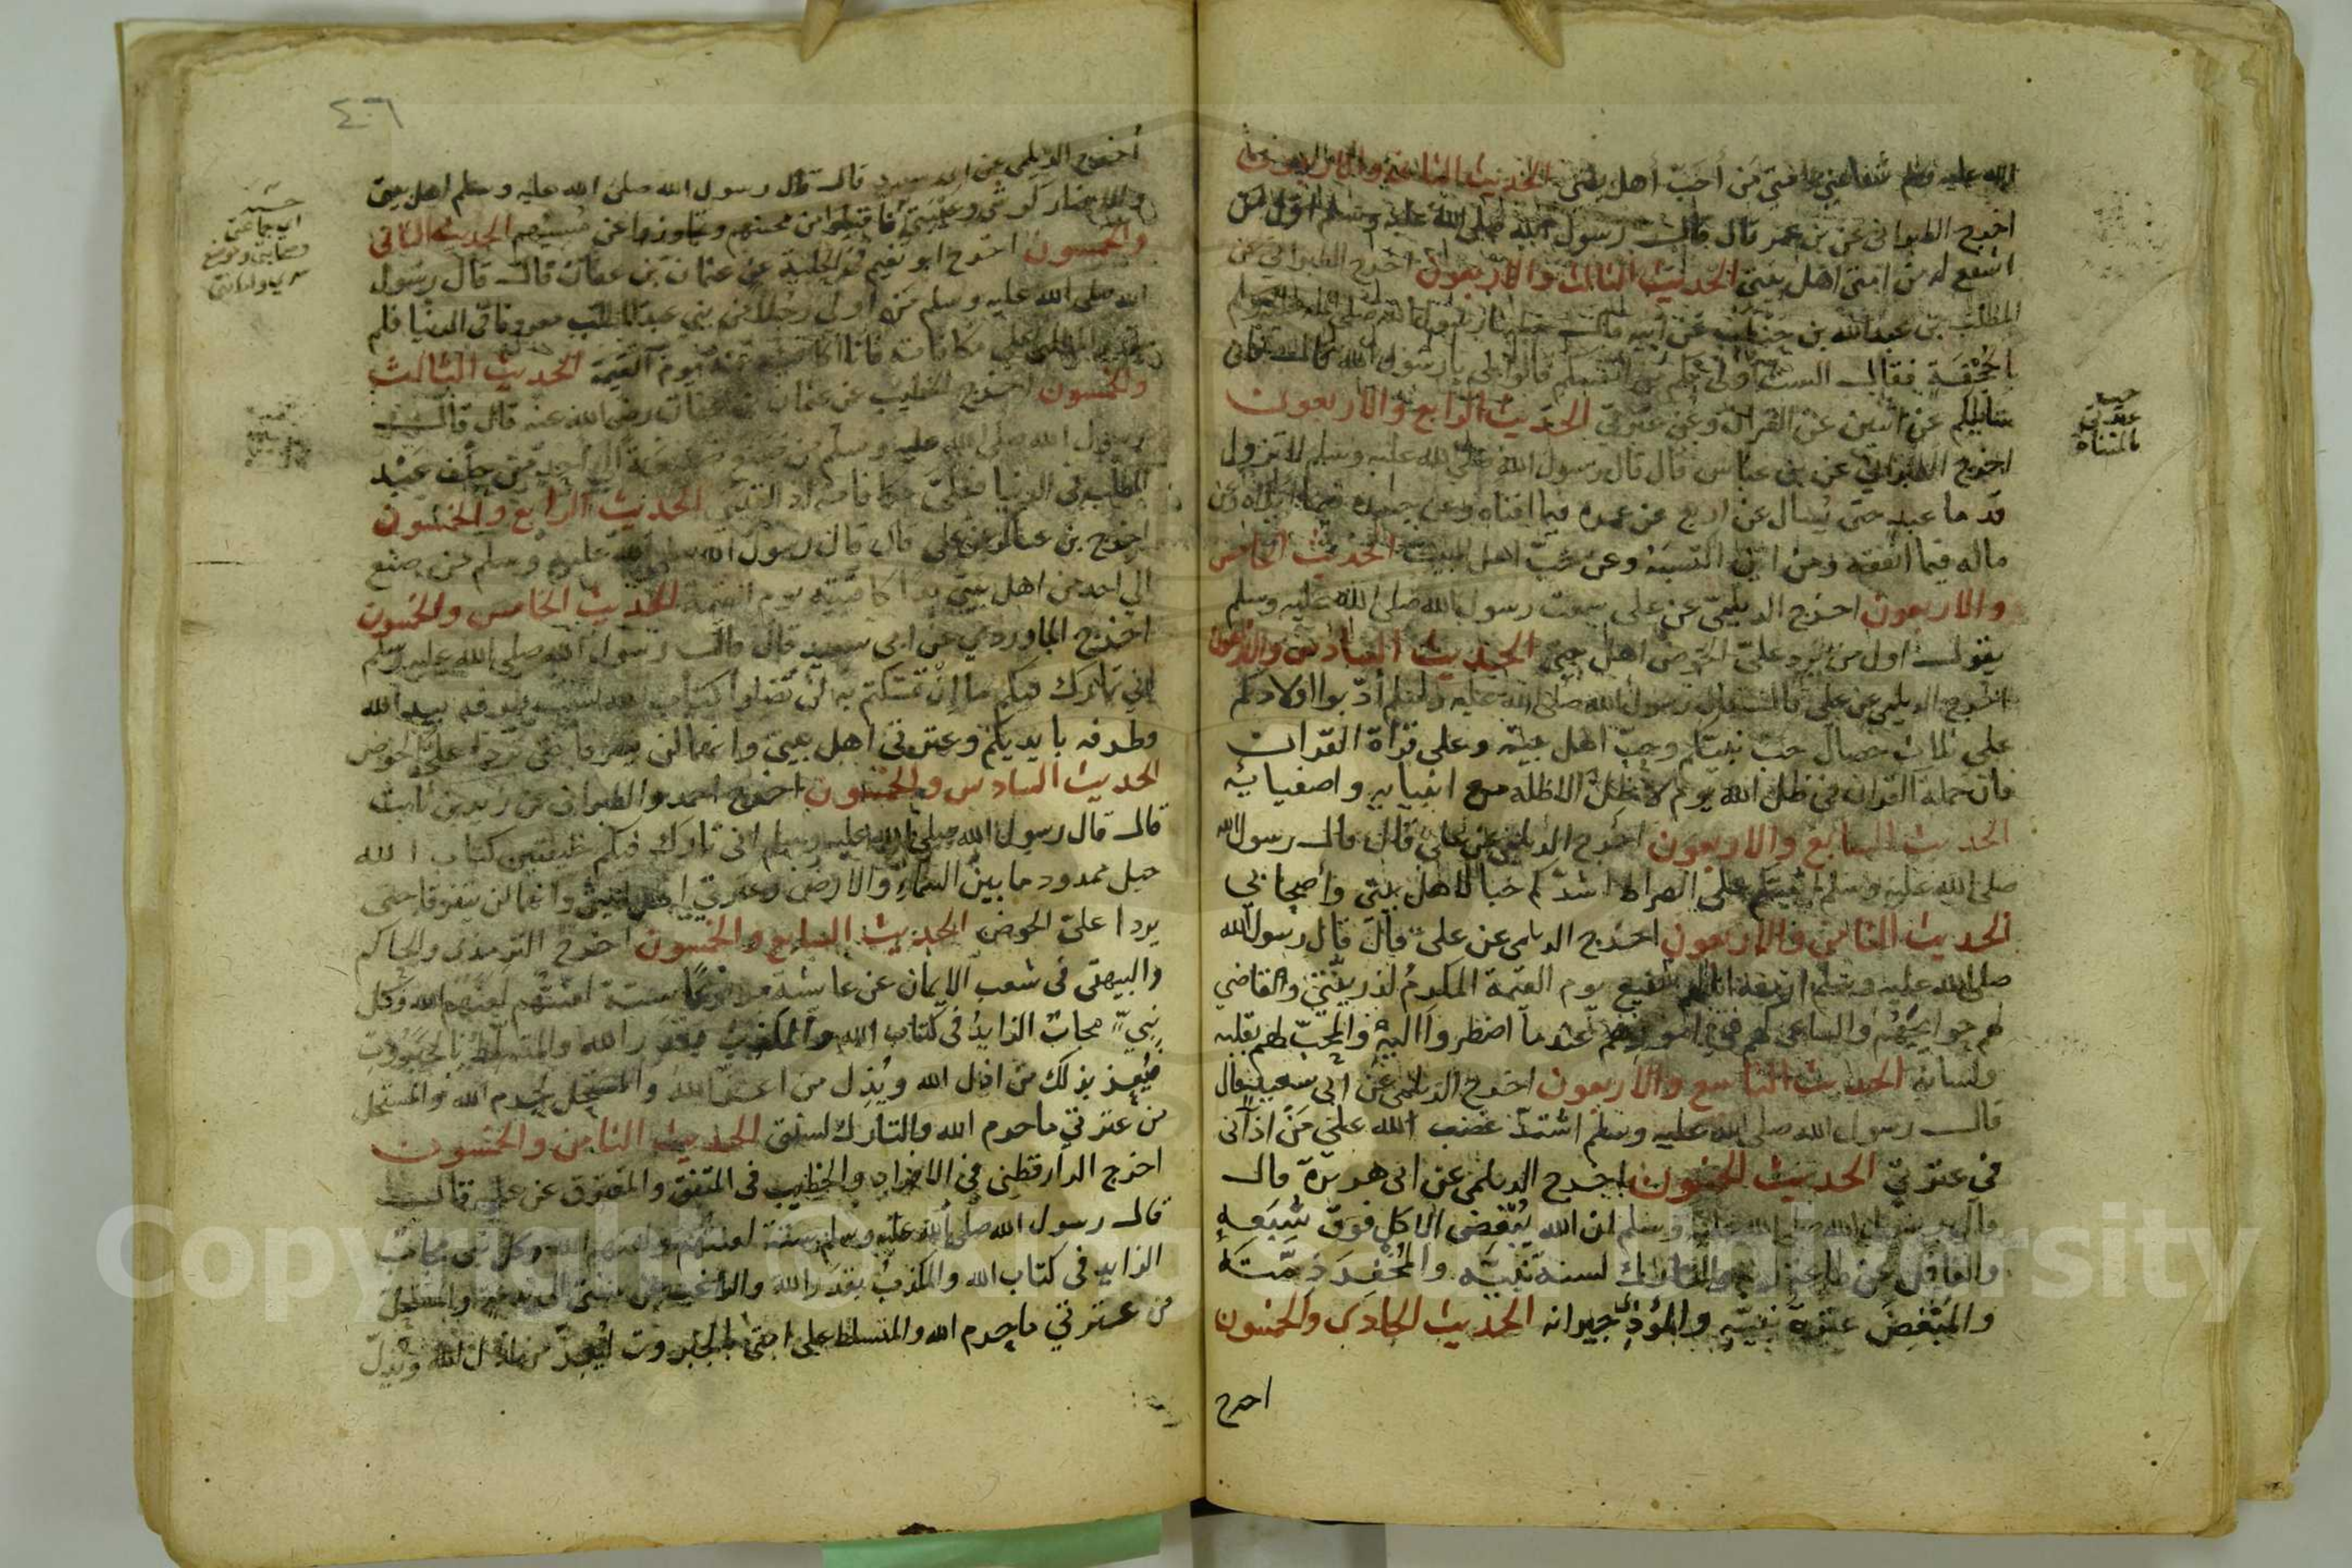 الله عليه وسلم شفاعتي لامتي من أحب أهل بيتي الحديث الثاني والاربعون
اخرج الطبراني عن بن عمر قال قال رسول الله صلى الله عليه وسلم اول من
اشفع له من امتي اهل بيتي الحديث الثالث والاربعون اخرج الطبراني عن
المطلب بن عبد الله بن حنطب عن أبيه قال خطبنا رسول الله صلى الله عليه وسلم
بالجحفة فقال الست اولى بكم من انفسكم قالوا بلى يا رسول الله قال فاني
سايلكم عن اثنين عن القرآن وعن عترتي الحديث الرابع والاربعون
اخرج الطبراني عن بن عباس قال قال رسول الله صلى الله عليه وسلم لا تزول
قدما عبد حتى يسال عن اربع عن عمره فيما افناه وعن جسده فيما ابلاه وعن
ماله فيما انفقه ومن اين اكتسبه وعن حب اهل البيت الحديث الخامس
والاربعون اخرج الديلمي عن على سمعت رسول الله صلى الله عليه وسلم
يقول اول من يرد علي الحوض اهل بيتي الحديث السادس والاربعون
اخرج الديلمي عن على قال قال رسول الله صلى الله عليه وسلم أدبوا اولادكم
على ثلاث خصال حب نبيكم وحب اهل بيته وعلى قراة القران
فان حملة القران في ظل الله يوم لا ظل الا ظله مع انبيايه واصفيايه
الحديث السابع والاربعون اخرج الديلمي عن على قال قال رسول الله
صلى الله عليه وسلم اثبتكم على الصراط اشدكم حبا لاهل بيتي وأصحابي
الحديث الثامن والاربعون اخرج الديلمى عن على قال قال رسول الله
صلى الله عليه وسلم اربعة انا لهم شفيع يوم القيمة المكرم لذريتي والقاضي
لهم حوايجهم والساعى لهم في امورهم عندما اضطروا اليه والمحب لهم بقلبه
ولسانه الحديث التاسع والاربعون اخرج الديلمى عن ابى سعيد قال
قال رسول الله صلى الله عليه وسلم اشتد غضب الله على من اذانى
في عترتي الحديث الخمسون اخرج الديلمى عن ابى هريرة قال
قال رسول الله صلى الله عليه وسلم ان الله يبغض الاكل فوق شبعه
والغافل عن طاعة ربه والتارك لسنة نبيه والمخفر ذمته
والمبغض عترة نبيه والمؤذي جيرانه الحديث الحادى والخمسون
اخرج
عترتي
بالمثناه
٤٠٦
أخرج الديلمي عن ابى سعيد قال قال رسول الله صلى الله عليه وسلم اهل بيتي
والانصار كرشي وعيبتي فاقبلوا من محسنهم وتجاوزوا عن مسيئهم الحديث الثاني
والخمسون اخرج ابو نعيم في الحلية عن عثمان بن عفان قال قال رسول
الله صلى الله عليه وسلم من اولى رجلا من بني عبد المطلب معروفا في الدنيا فلم
يقدر المطلبي على مكافاته فانا اكافيه عنه يوم القيمة الحديث الثالث
والخمسون اخرج الخطيب عن عثمان بن عفان رضى الله عنه قال قال
رسول الله صلى الله عليه وسلم من صنع صنيعة الى احد من خلف عبد
المطلب في الدنيا فعلي مكافاته اذا لقيني الحديث الرابع والخمسون
اخرج بن عساكر عن على قال قال رسول الله صلى الله عليه وسلم من صنع
الي احد من اهل بيتي يدا كافيته يوم القيمة الحديث الخامس والخمسون
اخرج الماوردي عن ابى سعيد قال قال رسول الله صلى الله عليه وسلم
إني تارك فيكم ما إن تمسكتم به لن تضلوا كتاب الله سبب طرفه بيد الله
وطرفه بايديكم وعترتي اهل بيتي وانهما لن يتفرقا حتى يردا علي الحوض
الحديث السادس والخمسون اخرج احمد والطبراني عن زيد بن ثابت
قال قال رسول الله صلى الله عليه وسلم اني تارك فيكم خليفتين كتاب الله
حبل ممدود ما بين السماء والارض وعترتي اهل بيتي وانهما لن يتفرقا حتى
يردا علي الحوض الحديث السابع والخمسون اخرج الترمذي والحاكم
والبيهقي في شعب الايمان عن عايشة مرفوعًا ستة لعنتهم لعنهم الله وكل
نبي مجاب الزايد في كتاب الله والمكذب بقدر الله والمتسلط بالجبروت
فيعز بذلك من اذل الله ويذل من اعز الله والمستحل لحرم الله والمستحل
من عترتي ما حرم الله والتارك لسنتي الحديث الثامن والخمسون
اخرج الدارقطني في الافراد والخطيب في المتفق والمفترق عن علي قال
قال رسول الله صلى الله عليه وسلم ستة لعنتهم ولعنهم الله وكل نبي مجاب
الزايد في كتاب الله والمكذب بقدر الله والراغب عن سنتي الى بدعة والمستحل
من عترتي ما حرم الله والمتسلط على امتي بالجبروت ليعز من اذل الله ويذل
اي جماعتي
وصحابتي وموضع
سري وامانتي
Copyright © King Saud University